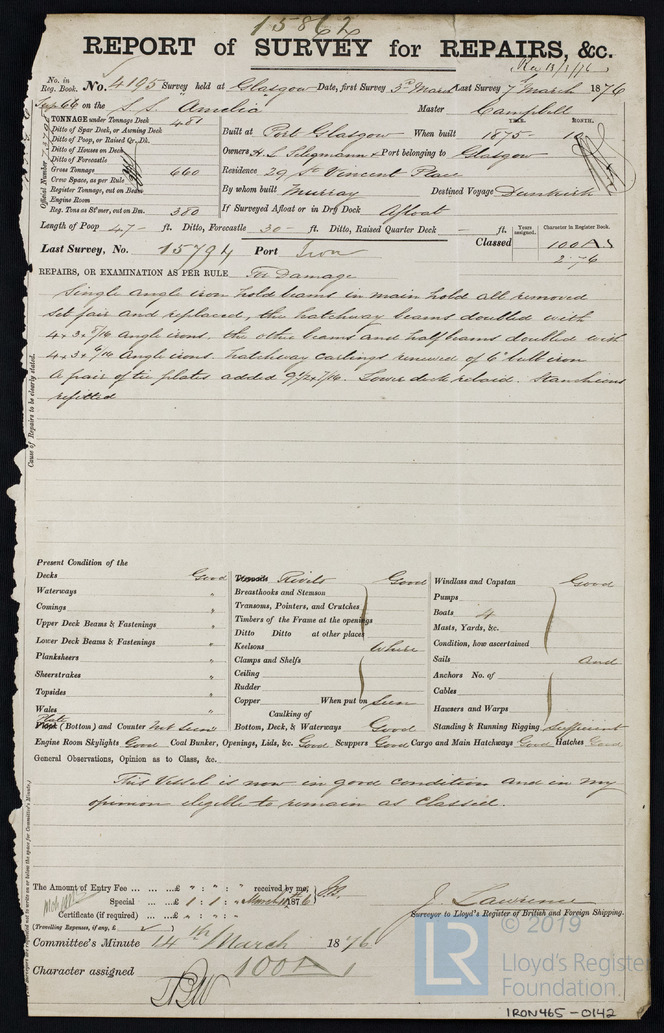 15862
REPORT of SURVEY for REPAIRS, &c.
Rec 13/3/76
No. in Reg. Book. No. 4195 Survey held at Glasgow Date, first Survey 3rd March Last Survey 7 March 1876
Sup 66 on the S.S. "Amelia" Master Campbell
TONNAGE under Tonnage Deck 481
Ditto of Spar Deck, or Awning Deck
Ditto of Poop, or Raised Qr. Dk.
Ditto of Houses on Deck
Ditto of Forecastle
Gross Tonnage 660
Crew Space, as per Rule
Register Tonnage, cut on Beam
Engine Room
Reg. Tons as St'mer, cut on Bm. 380
Official Number
YEAR. MONTH.
Built at Port Glasgow When built 1875 - 10
Owners H. L. Seligmann & Port belonging to Glasgow
Residence 29 St Vincent Place
By whom built Murray Destined Voyage Dunkirk
If Surveyed Afloat or in Dry Dock Afloat
Length of Poop 47 - ft. Ditto, Forecastle 30 - ft. Ditto, Raised Quarter Deck - ft.
Years assigned. Character in Register Book.
Last Survey, No. 15794 Port Iron Classed 100A1
2.76
REPAIRS, OR EXAMINATION AS PER RULE For Damage
Single angle iron hold beams in main hold all removed
set fair and replaced, the hatchway beams doubled with
4 x 3 x 5/16 angle irons. the other beams and half beams doubled with
4 x 3 x 6/16 angle irons. hatchway carlings renewed of 6" bulb iron
A pair of tie plates added 9 1/2 x 7/16. Lower deck relaid. Stanchions
refitted
Cause of Repairs to be clearly stated.
Present Condition of the
Decks Good
Waterways "
Comings "
Upper Deck Beams & Fastenings "
Lower Deck Beams & Fastenings "
Planksheers "
Sheerstrakes "
Topsides "
Wales "
Plate
Plank (Bottom) and Counter Not Seen
Treenails Rivets Good
Breasthooks and Stemson
Transoms, Pointers, and Crutches
Timbers of the Frame at the openings
Ditto Ditto at other places
Keelsons Where
Clamps and Shelfs
Ceiling
Rudder
Copper When put on Seen
Caulking of
Bottom, Deck, & Waterways Good
Windlass and Capstan Good
Pumps
Boats 4
Masts, Yards, &c.
Condition, how ascertained
Sails and
Anchors No. of
Cables
Hawsers and Warps
Standing & Running Rigging Sufficient
Engine Room Skylights Good Coal Bunker, Openings, Lids, &c. Good Scuppers Good Cargo and Main Hatchways Good Hatches Good
General Observations, Opinion as to Class, &c.
This Vessel is now in good condition and in my
opinion eligible to remain as Classed.
The Amount of Entry Fee ... ... ...£ " : " : " received by me,
Special ... ...£ 1 : 1 : " March 187 6
Certificate (if required) ... ...£ " : " : "
(Travelling Expenses, if any, £ )
J. Lawrence
Surveyor to Lloyd's Register of British and Foreign Shipping.
Committee's Minute 14th March 1876
Character assigned 100A1
© 2019
LR
Lloyd's Register
Foundation.
IRON465-0142